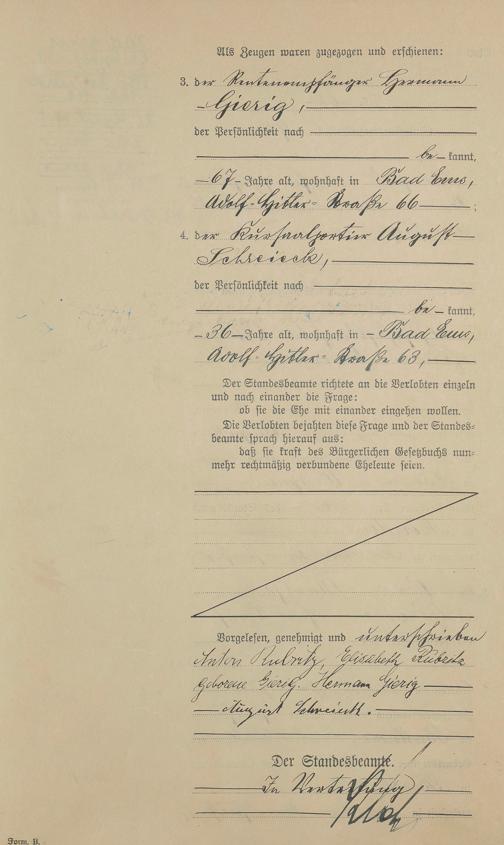 Als Zeugen waren zugezogen und erschienen:
3. der Rentenempfänger Hermann
Gierig,
der Persönlichkeit nach
be kannt,
67 Jahre alt, wohnhaft in Bad Ems,
Adolf-Hitler-Straße 66 ;
4. der Kursaalportier August
Schreieck,
der Persönlichkeit nach
be kannt,
36 Jahre alt, wohnhaft in Bad Ems,
Adolf-Hitler-Straße 63,
Der Standesbeamte richtete an die Verlobten einzeln
und nach einander die Frage:
ob sie die Ehe mit einander eingehen wollen.
Die Verlobten bejahten diese Frage und der Standes-
beamte sprach hierauf aus:
daß sie kraft des Bürgerlichen Gesetzbuchs nun-
mehr rechtmäßig verbundene Eheleute seien.
Vorgelesen, genehmigt und unterschrieben
Anton Rubritz, Elisabeth Rubritz
geborene Gierig. Hermann Gierig
August Schreieck.
Der Standesbeamte.
In Vertretung
Form. B.